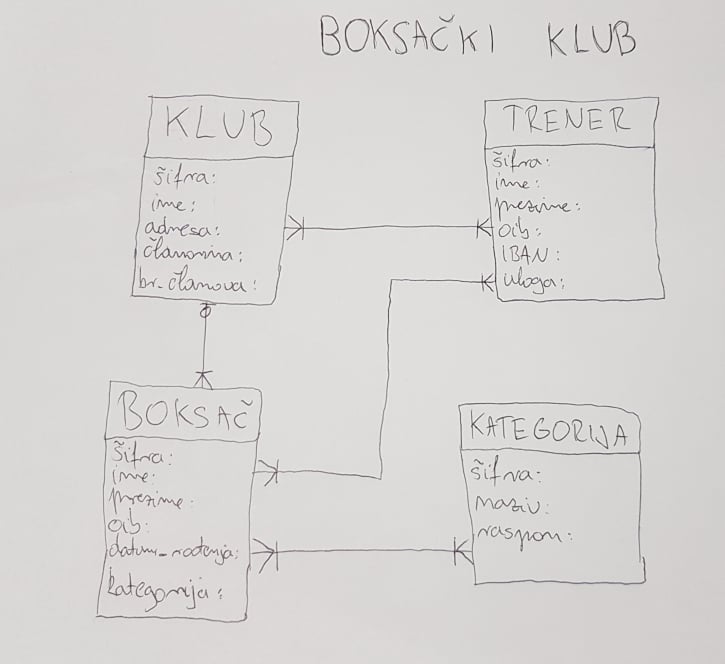 BOKSAČKI KLUB
KLUB
šifra:
ime:
adresa:
članarina:
br_članova:
TRENER
šifra:
ime:
prezime:
oib:
IBAN:
uloga:
BOKSAČ
šifra:
ime:
prezime:
oib:
datum_rođenja:
kategorija:
KATEGORIJA
šifra:
naziv:
raspon: